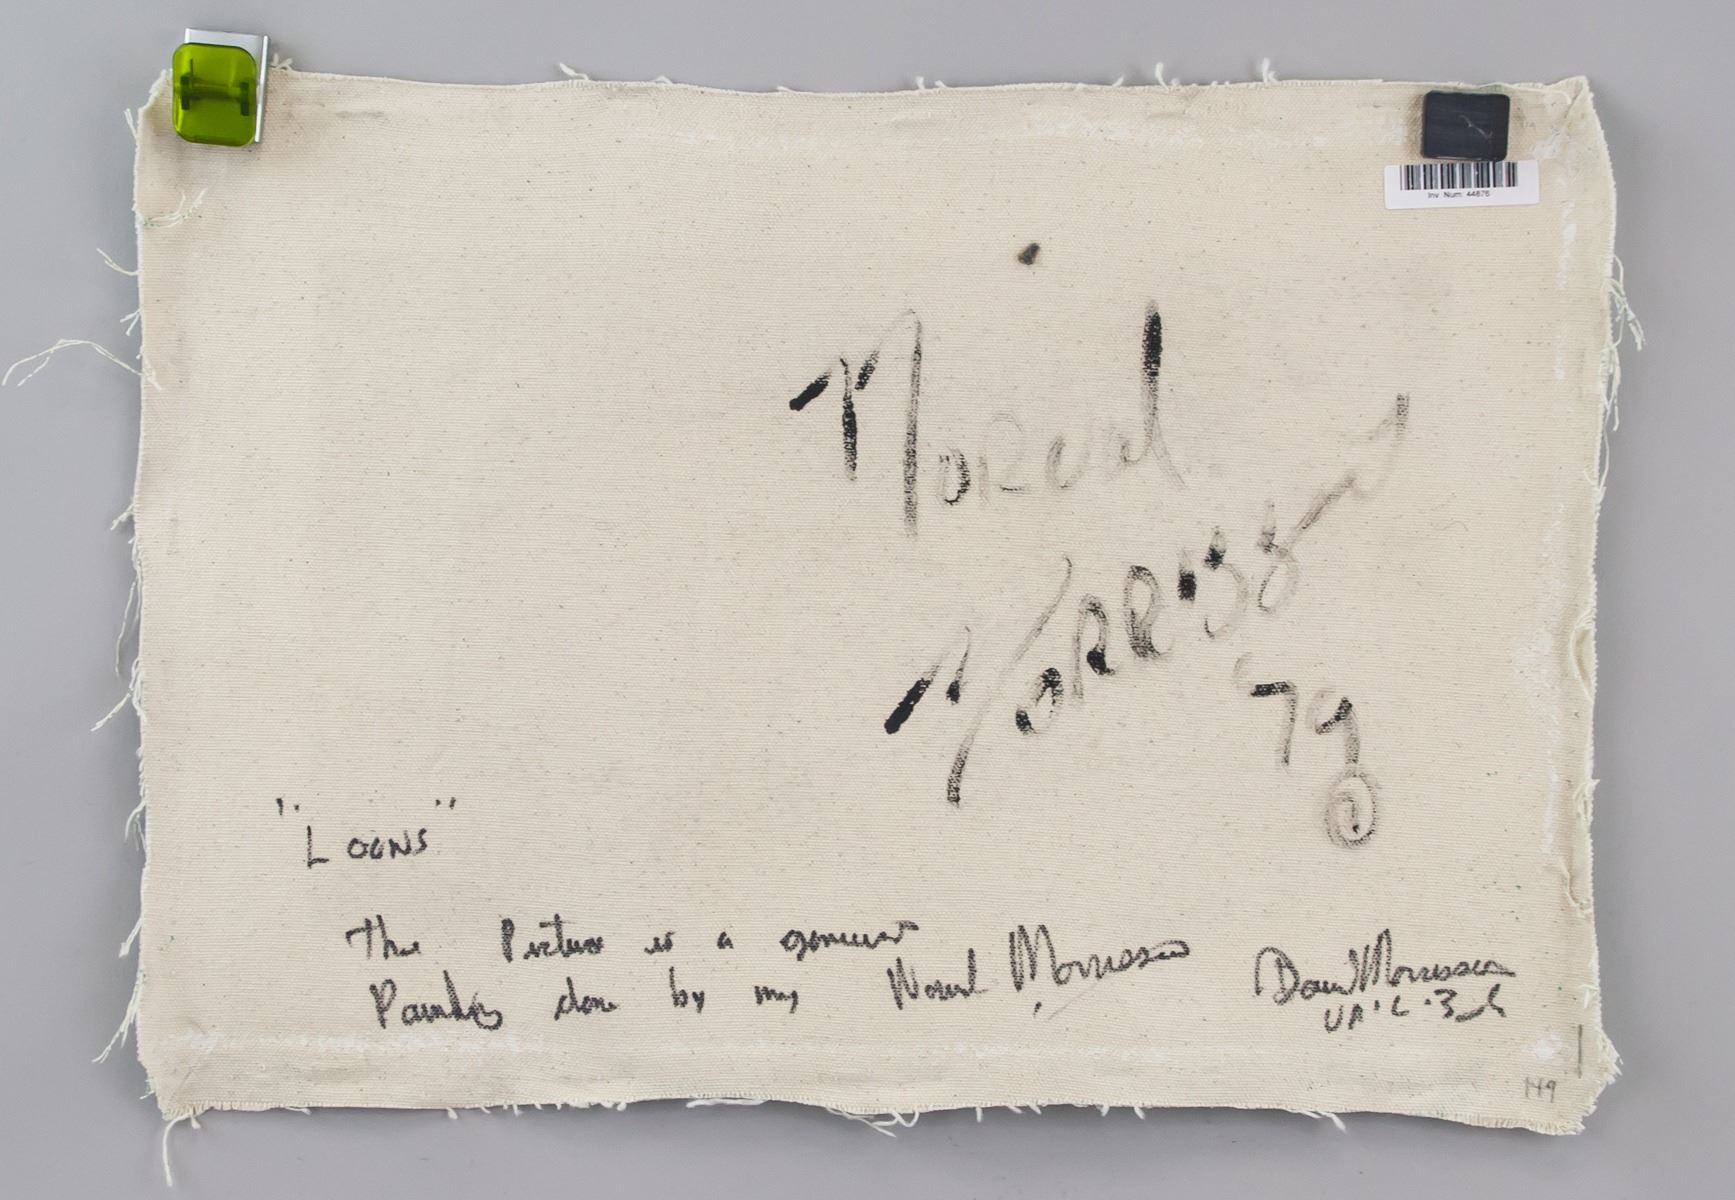 Inv. Num. 44876
Norval
Morrisseau
'79 ©
"Loons"
The Picture is a genuine
Painting done by my Norval Morrisseau
David Morrisseau
149